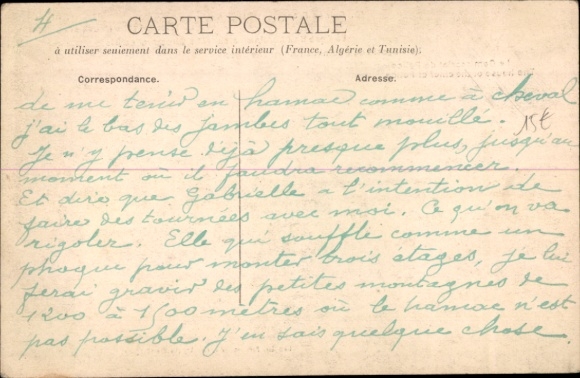 4
CARTE POSTALE
à utiliser seulement dans le service intérieur (France, Algérie et Tunisie).
Correspondance.
Adresse.
de me tenir en hamac comme à cheval
j'ai le bas des jambes tout mouillé.
15€
Je n'y pense déjà presque plus, jusqu'au
moment où il faudra recommencer.
Et dire que Gabrielle a l'intention de
faire des tournées avec moi. Ce qu'on va
rigoler. Elle qui souffle comme un
phoque pour monter trois étages, je lui
ferai gravir des petites montagnes de
1200 à 1500 mètres où le hamac n'est
pas possible. J'en sais quelque chose.